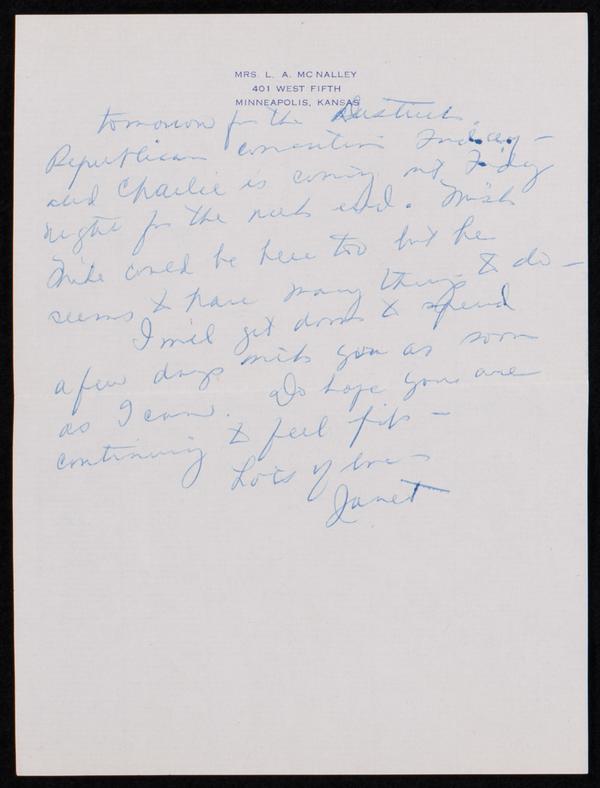 MRS. L. A. MCNALLEY
401 WEST FIFTH
MINNEAPOLIS, KANSAS
tomorrow for the District
Republican convention Friday –
and Charlie is coming out Friday
night for the week end. Wish
Mike could be here too but he
seems to have many things to do –
I will get down to spend
a few days with you as soon
as I can. Do hope you are
continuing to feel fit –
Lots of love
Janet